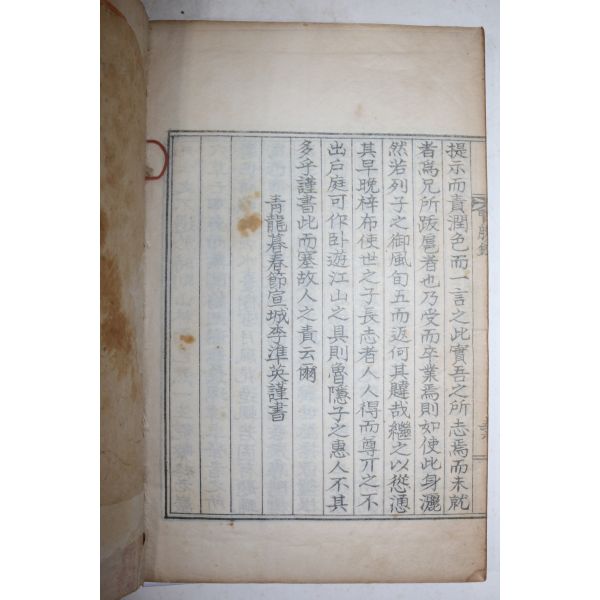 提示而責潤色而一言之此實吾之所志焉而未就
者爲兄所跋扈者也乃受而卒業焉則如使此身灑
然若列子之御風旬五而返何其韙哉繼之以慫慂
其早晚梓布使世之子長志者人人得而尊丌之不
出戶庭可作臥遊江山之具則魯隱子之惠人不其
多乎謹書此而塞故人之責云爾
靑龍暮春節宣城李準英謹書